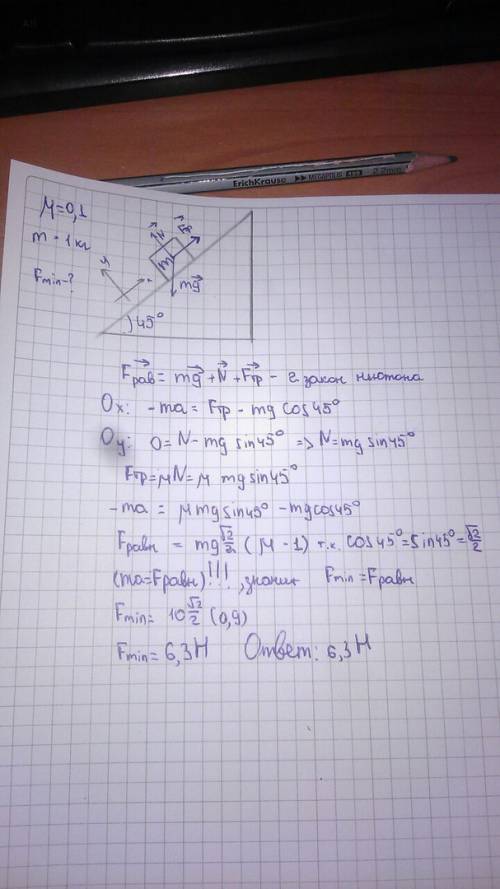 ErichKrause ▸▸ MEGAPOLIS
μ=0,1
m = 1 кг
Fmin-?
y
N
Fтр
m
mg
45°
Fрав = mg + N + Fтр - 2 закон ньютона
Ox: -ma = Fтр - mg cos45°
Oy: 0 = N - mg sin45° => N = mg sin45°
Fтр = μN = μ mg sin45°
-ma = μ mg sin45° - mg cos45°
Fравн = mg √2/2 (μ - 1) т.к. cos45° = sin45° = √2/2
(ma = Fравн)!!!, значит Fmin = Fравн
Fmin = 10 √2/2 (0,9)
Fmin = 6,3 H Ответ: 6,3 H